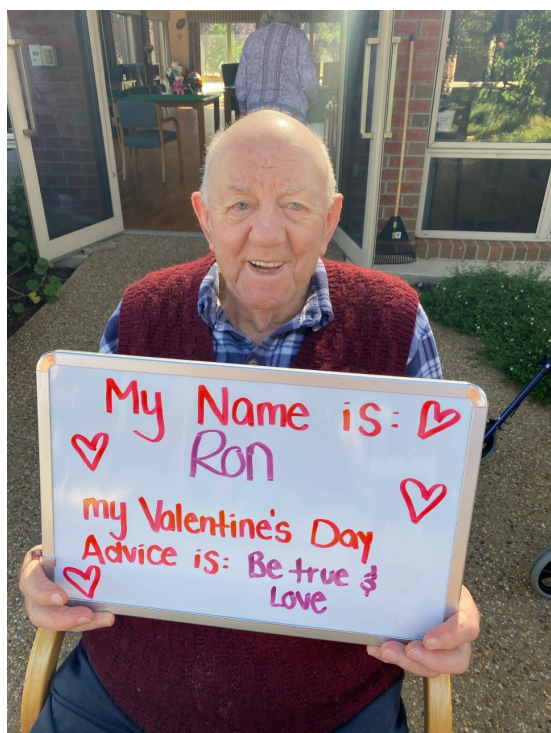 My Name is:
Ron
my Valentine's Day
Advice is: Be true &
Love